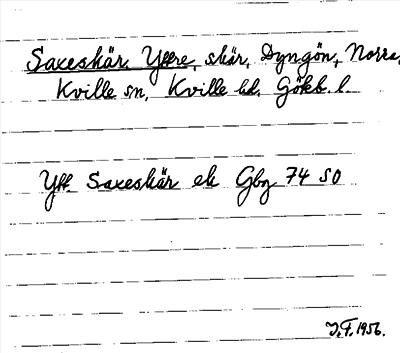 Saxeskär Yttre, skär, Dyngön, Norra,
Kville sn, Kville hd. Göteb. l.
Ytt. Saxeskär ek Gbg 74 SO
J.F. 1956.